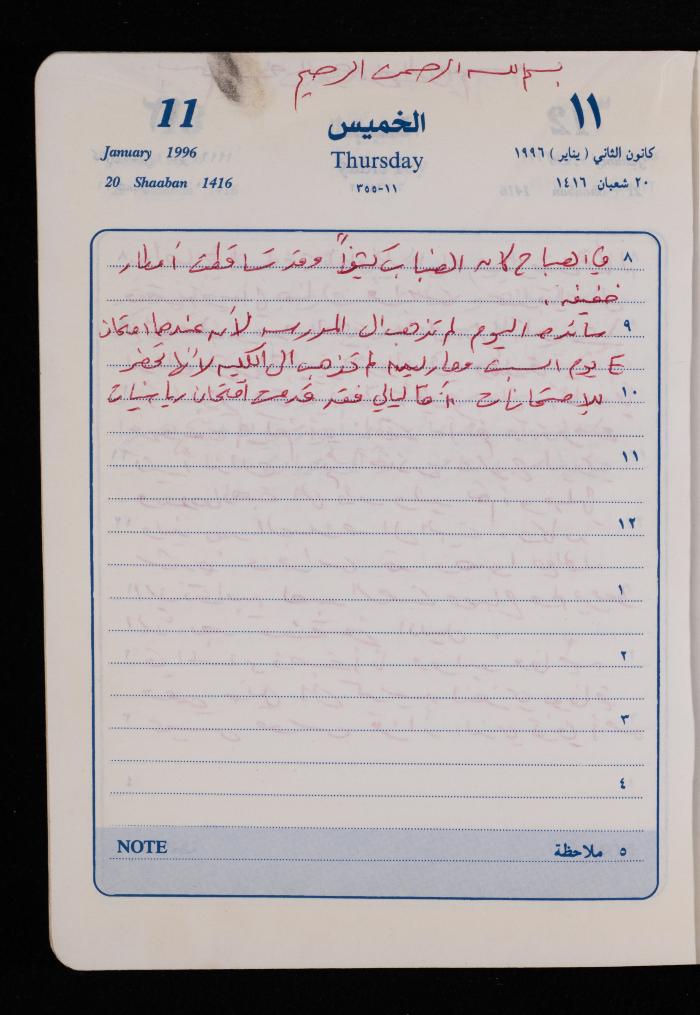 بسم الله الرحمن الرحيم
11
January 1996
20 Shaaban 1416
الخميس
Thursday
٣٥٥-١١
١١
كانون الثاني ( يناير ) ١٩٩٦
٢٠ شعبان ١٤١٦
٨ في الصباح كان الضباب كثيفاً وقد تساقطت أمطار
خفيفه .
٩ ساندره اليوم لم تذهب الى المدرسه لأن عندها امتحان
يوم السبت وماريانه لم تذهب الى الكليه لأنها تحضر
١٠ للإمتحانات أما ليالي فقد قدمت امتحان رياضيات
١١
١٢
١
٢
٣
٤
NOTE
٥ ملاحظة